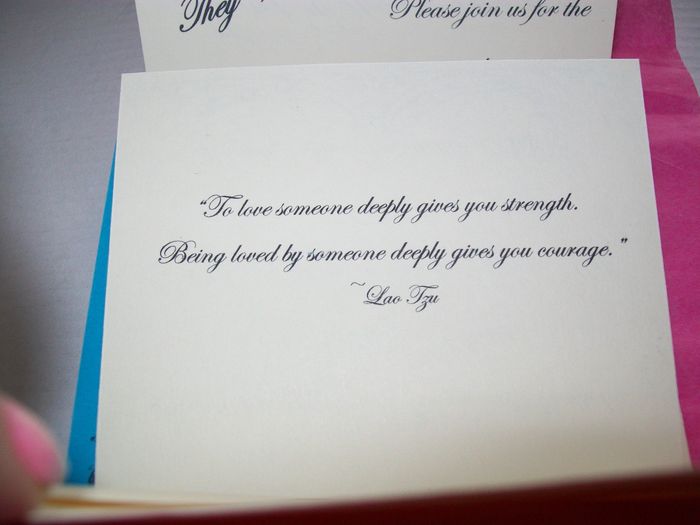 They
Please join us for the
“To love someone deeply gives you strength.
Being loved by someone deeply gives you courage.”
~Lao Tzu